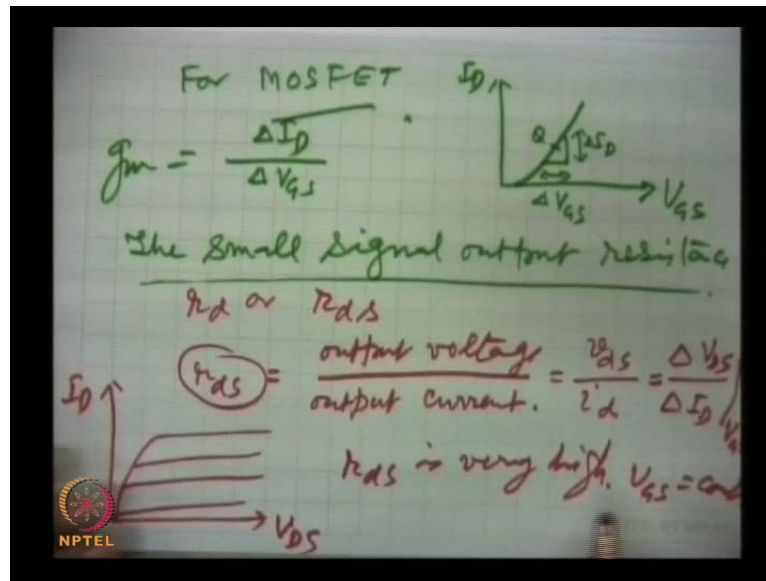 For MOSFET
gm = ΔID / ΔVGS
ID
Q
ΔID
ΔVGS
VGS
The small signal output resistanc
rd or rds
rds = output voltage / output current. = vds / id = ΔVDS / ΔID |
rds is very high. VGS = con
ID
VDS
NPTEL